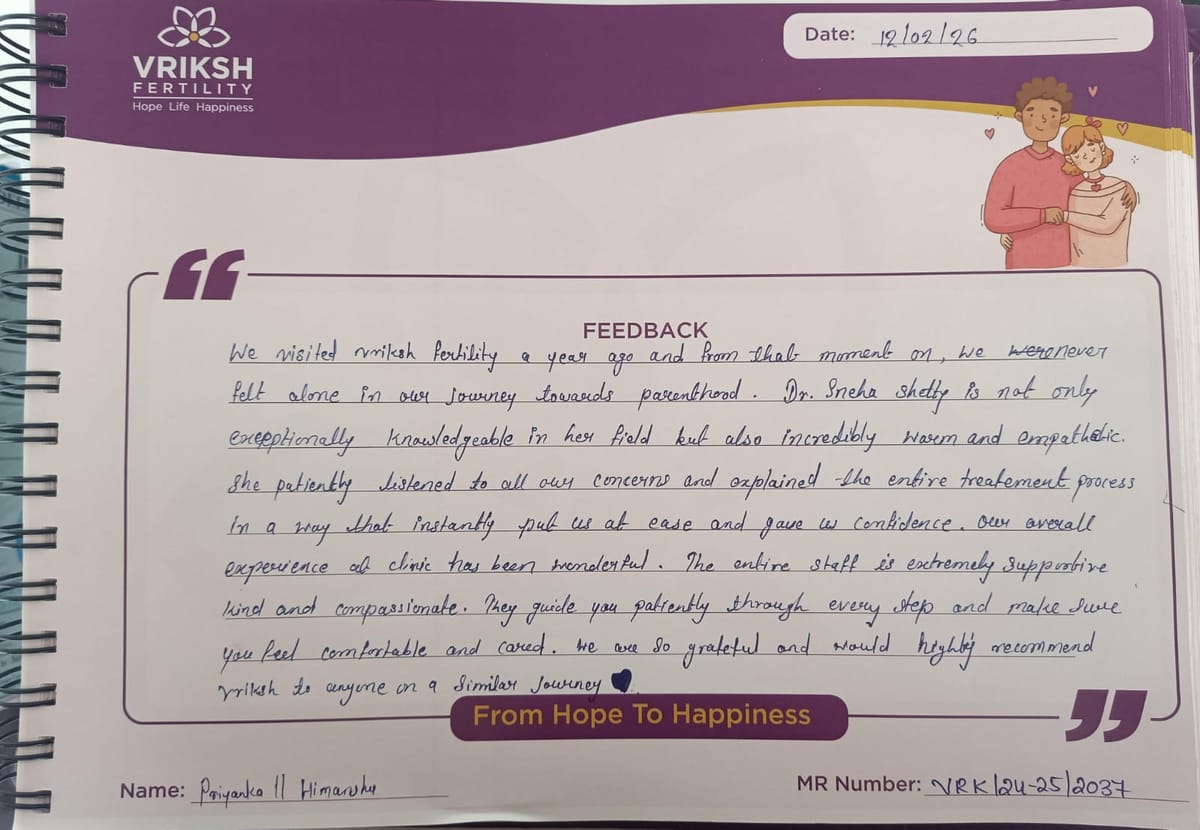 VRIKSH
FERTILITY
Hope Life Happiness
Date: 12/02/26
FEEDBACK
We visited vriksh fertility a year ago and from that moment on, we were never
felt alone in our journey towards parenthood. Dr. Sneha Shetty is not only
exceptionally knowledgeable in her field but also incredibly warm and empathetic.
She patiently listened to all our concerns and explained the entire treatement process
in a way that instantly put us at ease and gave us confidence. Our overall
experience at clinic has been wonderful. The entire staff is extremely supportive
kind and compassionate. They guide you patiently through every step and make sure
you feel comfortable and cared. We are so grateful and would highly recommend
vriksh to anyone on a similar journey
From Hope To Happiness
Name: Priyanka || Himanshu
MR Number: VRK/24-25/2037